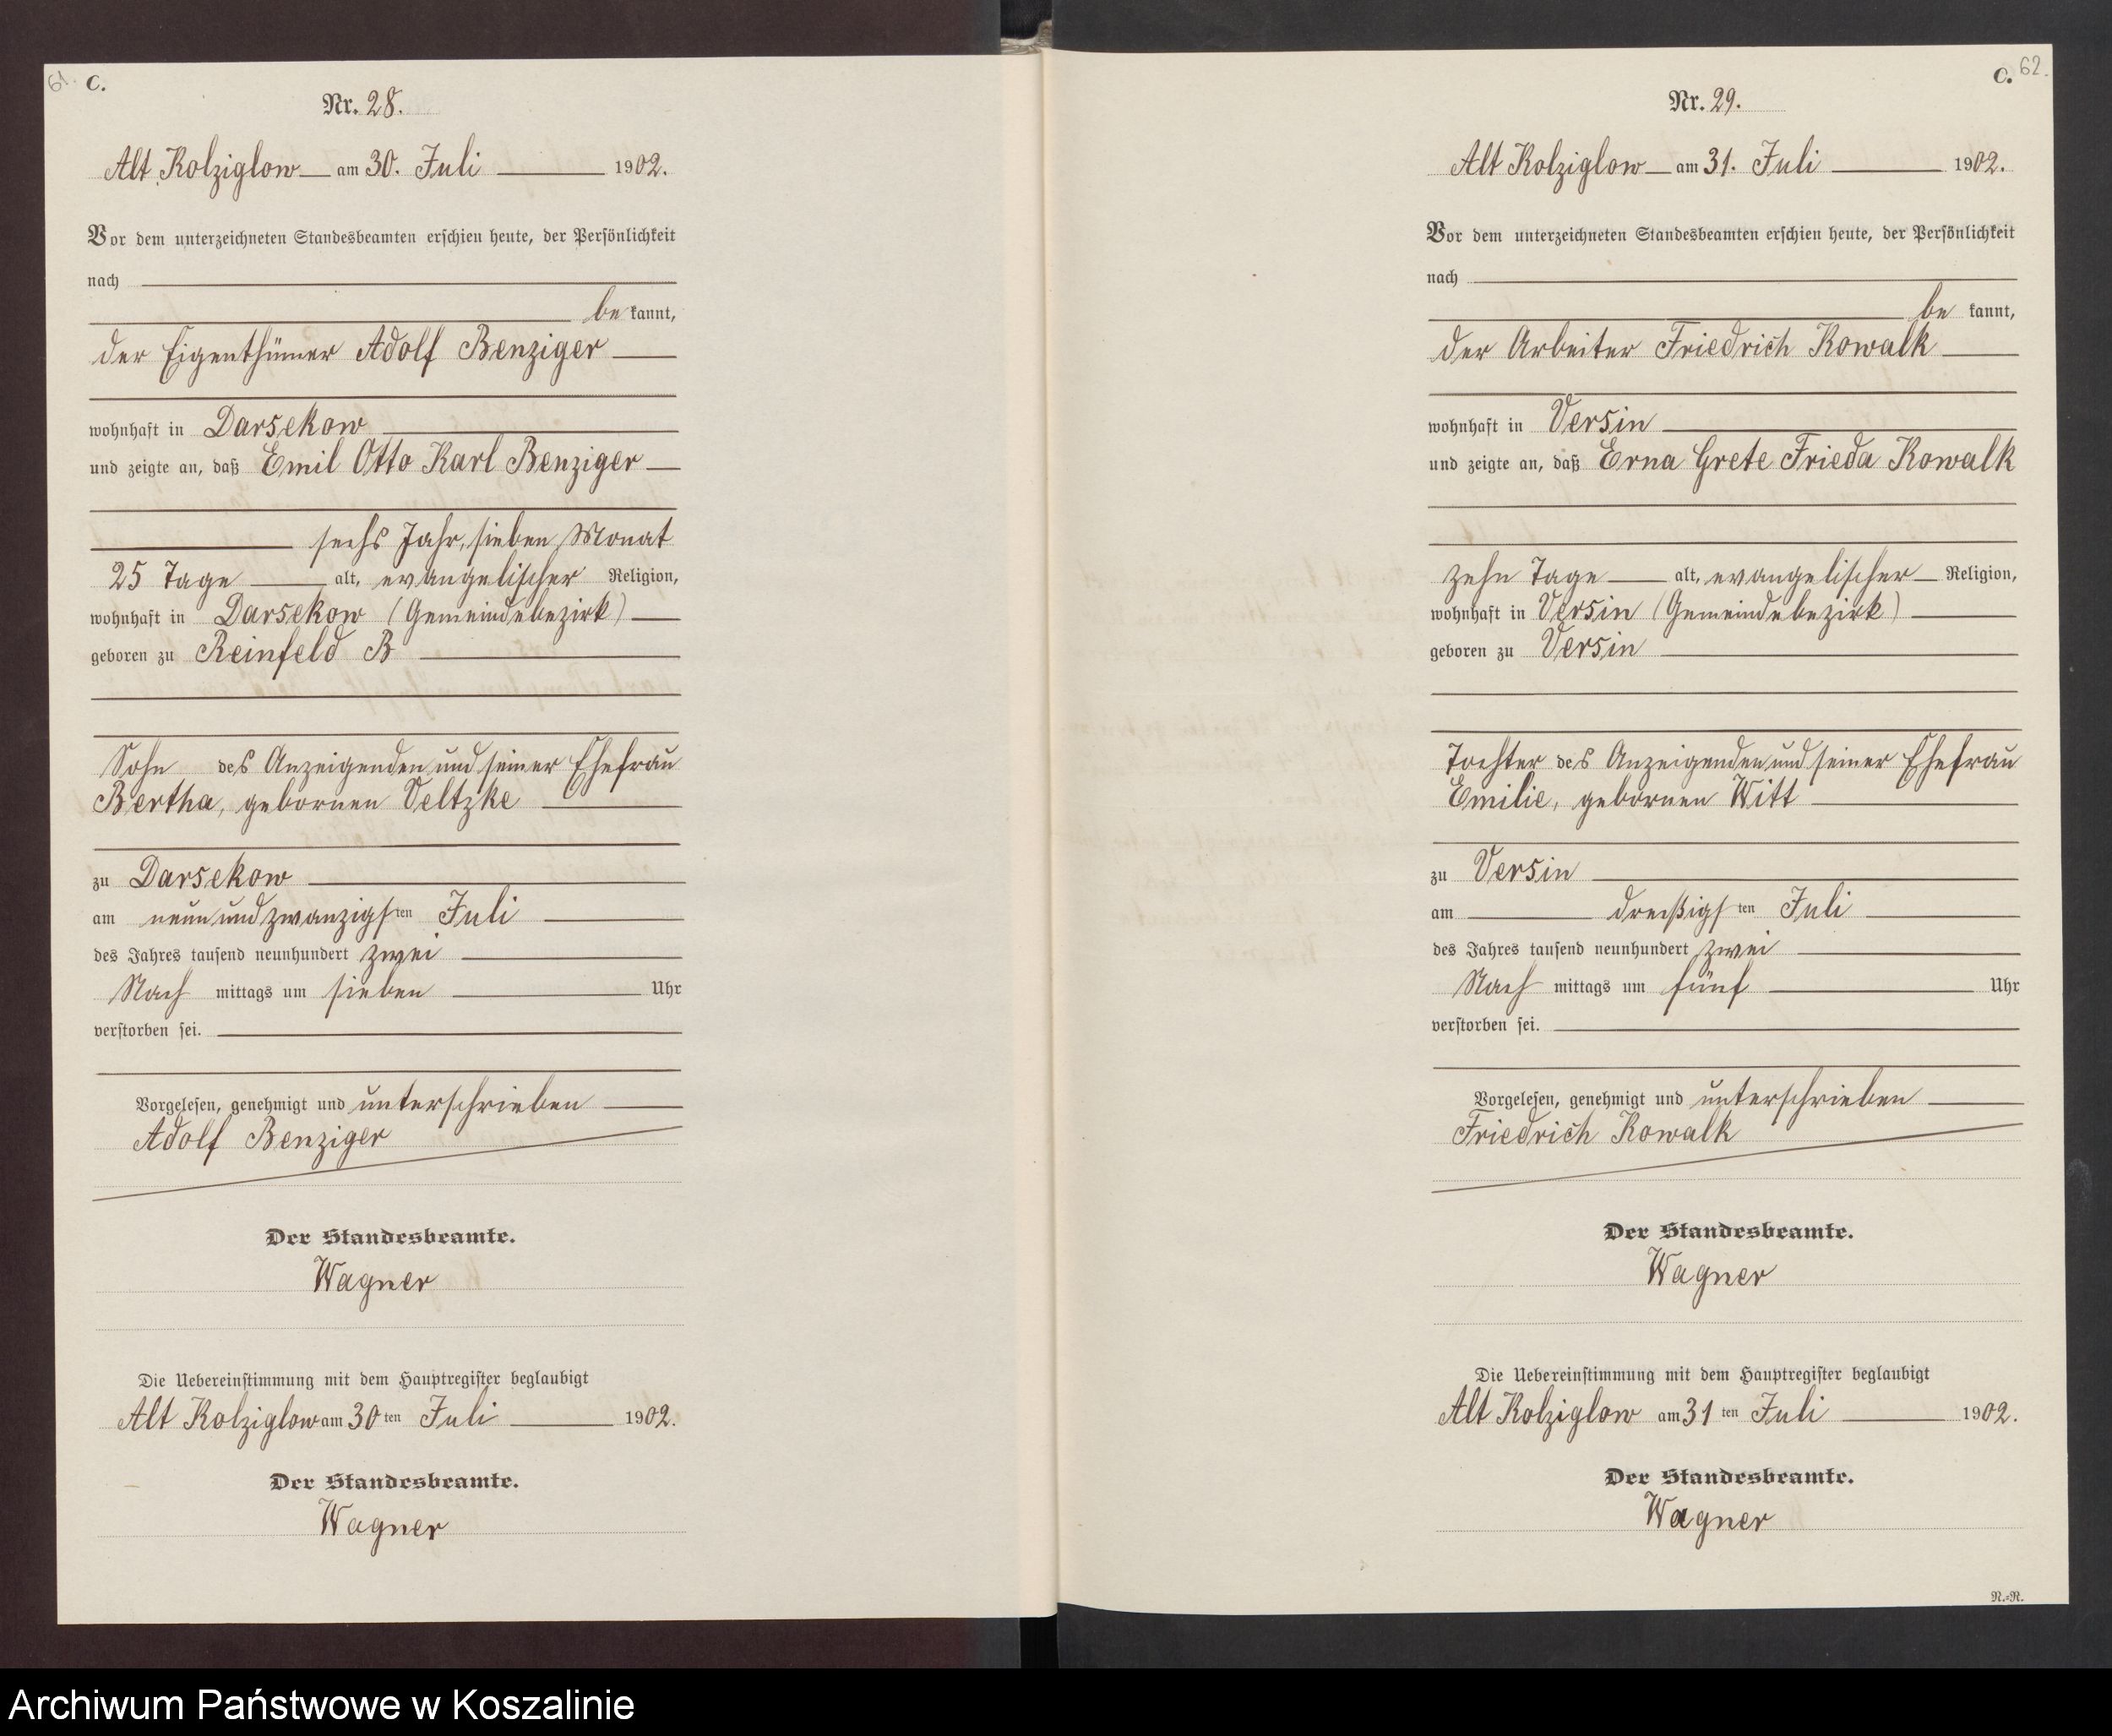 61. C.
Nr. 28.
Alt Kolziglow am 30. Juli 1902.
Vor dem unterzeichneten Standesbeamten erschien heute, der Persönlichkeit
nach
be kannt,
der Eigenthümer Adolf Benziger
wohnhaft in Darsekow
und zeigte an, daß Emil Otto Karl Benziger
sechs Jahr, sieben Monat
25 Tage alt, evangelischer Religion,
wohnhaft in Darsekow (Gemeindebezirk)
geboren zu Reinfeld B
Sohn des Anzeigenden und seiner Ehefrau
Bertha, gebornen Veltzke
zu Darsekow
am neun und zwanzigsten Juli
des Jahres tausend neunhundert zwei
Nach mittags um sieben Uhr
verstorben sei.
Vorgelesen, genehmigt und unterschrieben
Adolf Benziger
Der Standesbeamte.
Wagner
Die Uebereinstimmung mit dem Hauptregister beglaubigt
Alt Kolziglow am 30 ten Juli 1902.
Der Standesbeamte.
Wagner
C. 62.
Nr. 29.
Alt Kolziglow am 31. Juli 1902.
Vor dem unterzeichneten Standesbeamten erschien heute, der Persönlichkeit
nach
be kannt,
der Arbeiter Friedrich Kowalk
wohnhaft in Versin
und zeigte an, daß Erna Grete Frieda Kowalk
zehn Tage alt, evangelischer Religion,
wohnhaft in Versin (Gemeindebezirk)
geboren zu Versin
Tochter des Anzeigenden und seiner Ehefrau
Emilie, gebornen Witt
zu Versin
am dreißigsten Juli
des Jahres tausend neunhundert zwei
Nach mittags um fünf Uhr
verstorben sei.
Vorgelesen, genehmigt und unterschrieben
Friedrich Kowalk
Der Standesbeamte.
Wagner
Die Uebereinstimmung mit dem Hauptregister beglaubigt
Alt Kolziglow am 31 ten Juli 1902.
Der Standesbeamte.
Wagner
N.=R.
Archiwum Państwowe w Koszalinie